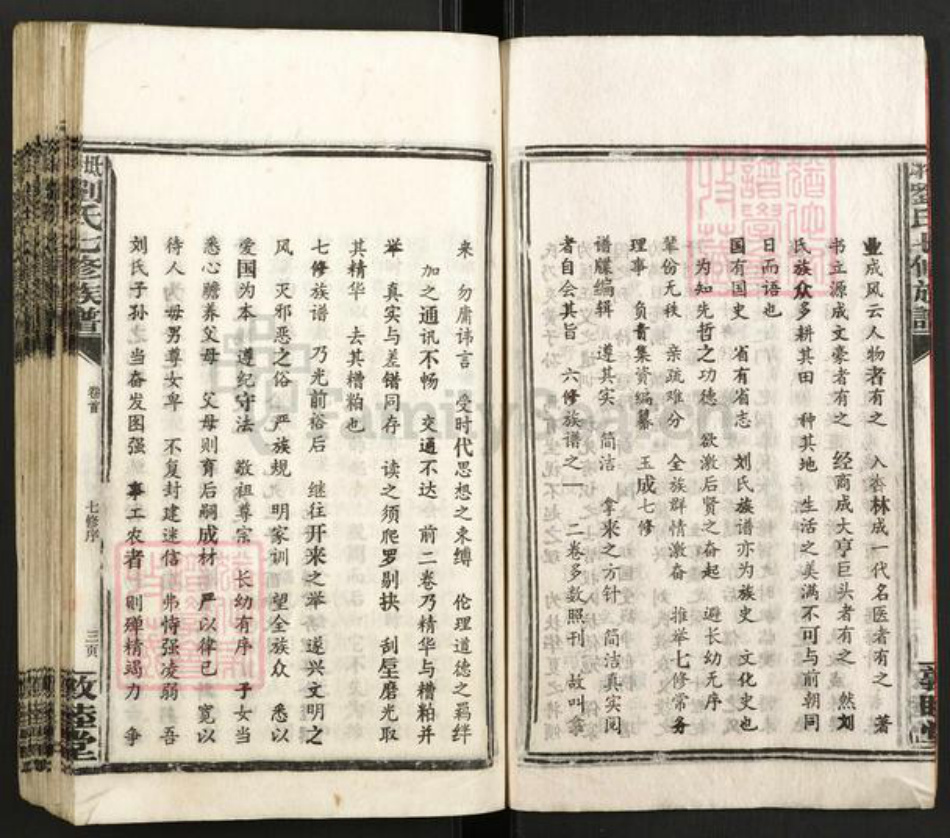 业成风云人物者有之 入杏林成一代名医者有之 著
书立源成文豪者有之 经商成大亨巨头者有之 然刘
氏族众多耕其田 种其地 生活之美满不可与前朝同
日而语也
国有国史 省有省志 刘氏族谱亦为族史 文化史也
为知先哲之功德 欲激后贤之奋起 避长幼无序
辈份无秩 亲疏难分 全族群情激奋 推举七修常务
理事 负责集资编纂 玉成七修
谱牒编辑 遵其实 简洁 拿来之方针 简洁真实阅
者自会其旨 六修族谱之一 二卷多数照刊 故叫拿
来 勿庸讳言 受时代思想之束缚 伦理道德之羁绊
加之通讯不畅 交通不达 前二卷乃精华与糟粕并
举 真实与差错同存 读之须爬罗剔抉 刮垔磨光取
其精华 去其糟粕也
七修族谱 乃光前裕后 继往开来之举 遂兴文明之
风 灭邪恶之俗 严族规 明家训 望全族众 悉以
爱国为本 遵纪守法 敬祖尊宗 长幼有序 子女当
悉心赡养父母 父母则育后嗣成材 严以律已 宽以
待人 为母男尊女卑 不复封建迷信 弗恃强凌弱 吾
刘氏子孙 之当奋发图强 事工农者 则殚精竭力 争
刘氏七修族谱
卷首
七修序
三页
敦睦堂